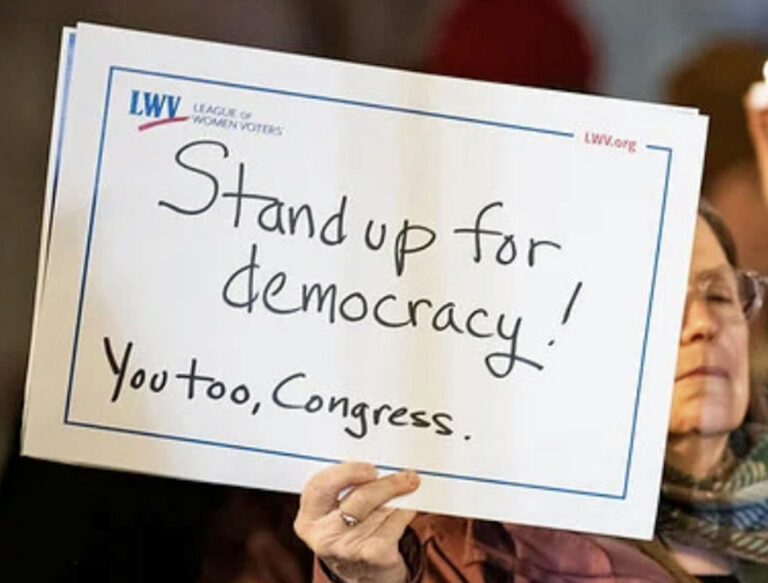 LWV
LEAGUE OF
WOMEN VOTERS
LWV.org
Stand up for
democracy!
You too, Congress.